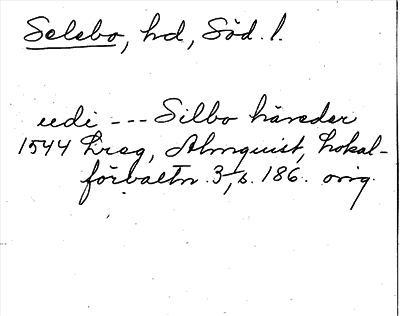 Selebo, hd, Söd. l.
uedi --- Silbo häreder
1544 Breg, Almquist, Lokal-
förvaltn. 3, s. 186. orig.